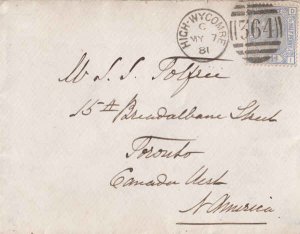 HIGH-WYCOMBE
C
MY 7
81
364
Mr S. S. Polfrée
15 A Breadalbane Street
Toronto
Canada West
N. America